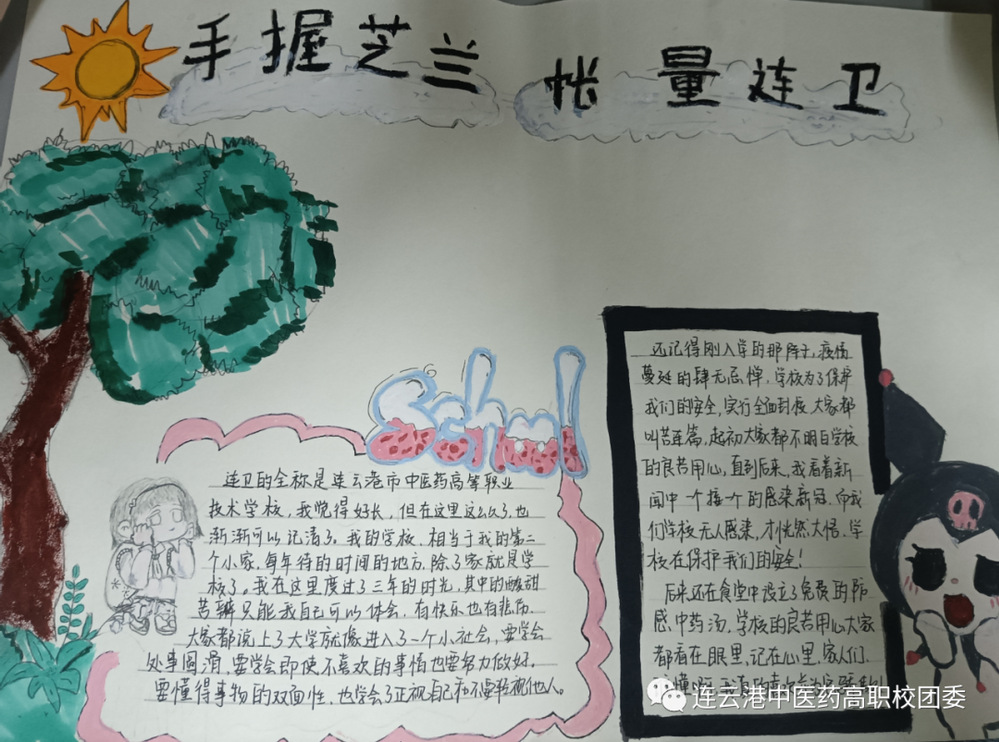 手握芝兰
怅量连卫
School
连卫的全称是连云港市中医药高等职业
技术学校，我觉得好长，但在这里这么久了也
渐渐可以记清了。我的学校，相当于我的第二
个小家，每年待的时间的地方，除了家就是学
校了。我在这里度过了三年的时光，其中的酸甜
苦辣只能我自己可以体会，有快乐也有悲伤。
大家都说上了大学就像进入了一个小社会，要学会
处事圆滑，要学会即使不喜欢的事情也要努力做好，
要懂得事物的双面性，也学会了正视自己和不要轻视他人。
还记得刚入学的那阵子，疫情
蔓延的肆无忌惮，学校为了保护
我们的安全，实行全面封校，大家都
叫苦连篇，起初大家都不明白学校
的良苦用心，直到后来，我看着新
闻中一个接一个的感染新冠，而我
们学校无人感染，才恍然大悟，学
校在保护我们的安全！
后来还在食堂中设立了免费的防
感中药汤，学校的良苦用心大家
都看在眼里，记在心里，家人们，
连云港中医药高职校团委